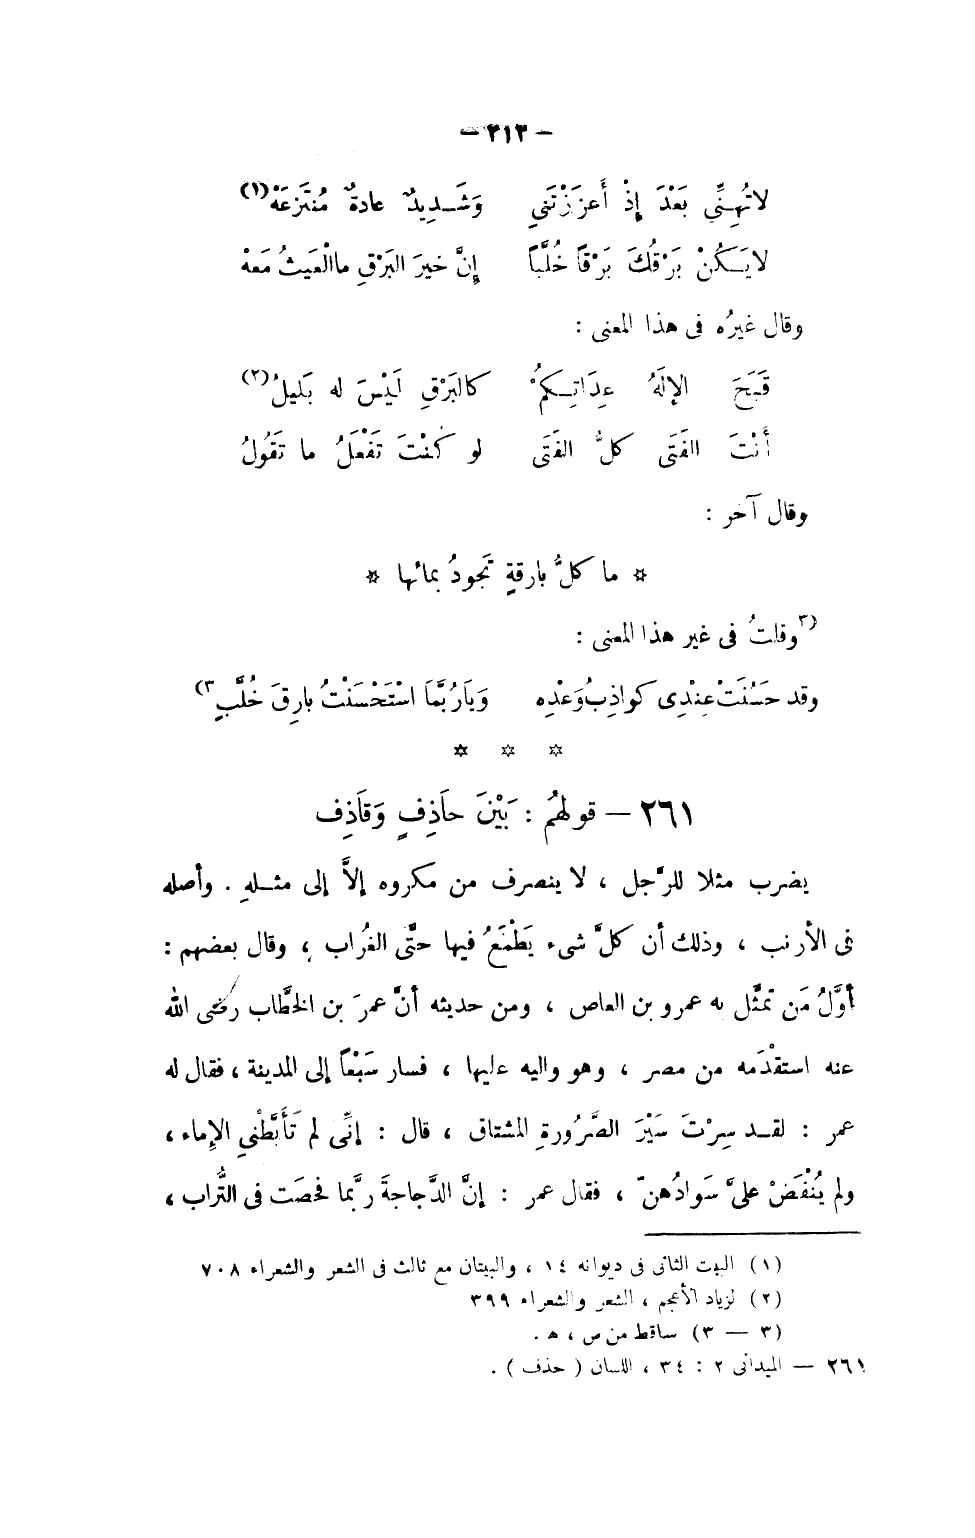 — ٢١٢ —
لاتُهِنِّي بَعْدَ إِذْ أَعزَزْتَنيِ وَشَـديدٌ عادةٌ مُنْتَزعَهْ(١)
لايَـكُنْ بَرْقُكَ بَرْقاً خُلَّباً إِنَّ خيرَ البَرْقِ ماالْغَيثُ مَعهْ
وقال غيرُه فى هذا المعنى :
قَبَحَ الإلَهُ عِدَاتِـكمْ كالبَرْقِ لَيْسَ له بَليلُ(٢)
أَنْتَ الفَتَى كلُّ الفَتَى لو كُنْتَ تَفْعَلُ ما تَقُولُ
وقال آخر :
* ما كلُّ بارقةٍ تَجودُ بمائها *
٣)وقلتُ فى غير هذا المعنى :
وقد حَسُنَتْ عِنْدِى كواذِبُ وَعْدِه وَيَارُبَّمَا اسْتَحْسَنْتُ بارِقَ خُلَّبٍ٣)
* * *
٢٦١ — قولهُم : بَيْنَ حاَذِفٍ وَقاَذِف
يضرب مثلا للرَّجل ، لا ينصرف من مكروه إلاَّ إلى مثـلهِ . وأصله
فى الأرنب ، وذلك أن كلَّ شىء يَطْمَعُ فيها حتَّى الغُراب ، وقال بعضهم :
أوَّلُ مَن تمثَّل به عمرو بن العاص ، ومن حديثه أنَّ عمرَ بن الخطَّاب رضى الله
عنه استقْدَمه من مصر ، وهو واليه عليها ، فسار سَبْعاً إلى المدينة ، فقال له
عمر : لقـد سِرْتَ سَيْرَ الصَّرُورةِ المشتاق ، قال : إنِّى لم تَأَبَّطْنيِ الإماء ،
ولم يُنْفَضْ علىَّ سَوادُهنّ ، فقال عمر : إنَّ الدَّجاجةَ ربَّما فحصَت فى التُّراب ،
(١) البيت الثانى فى ديوانه ١٤ ، والبيتان مع ثالث فى الشعر والشعراء ٧٠٨
(٢) لزياد الأعجم ، الشعر والشعراء ٣٩٩
(٣ — ٣) ساقط من ص ، ه .
٢٦١ — الميدانى ٢ : ٣٤ ، اللسان ( حذف ) .